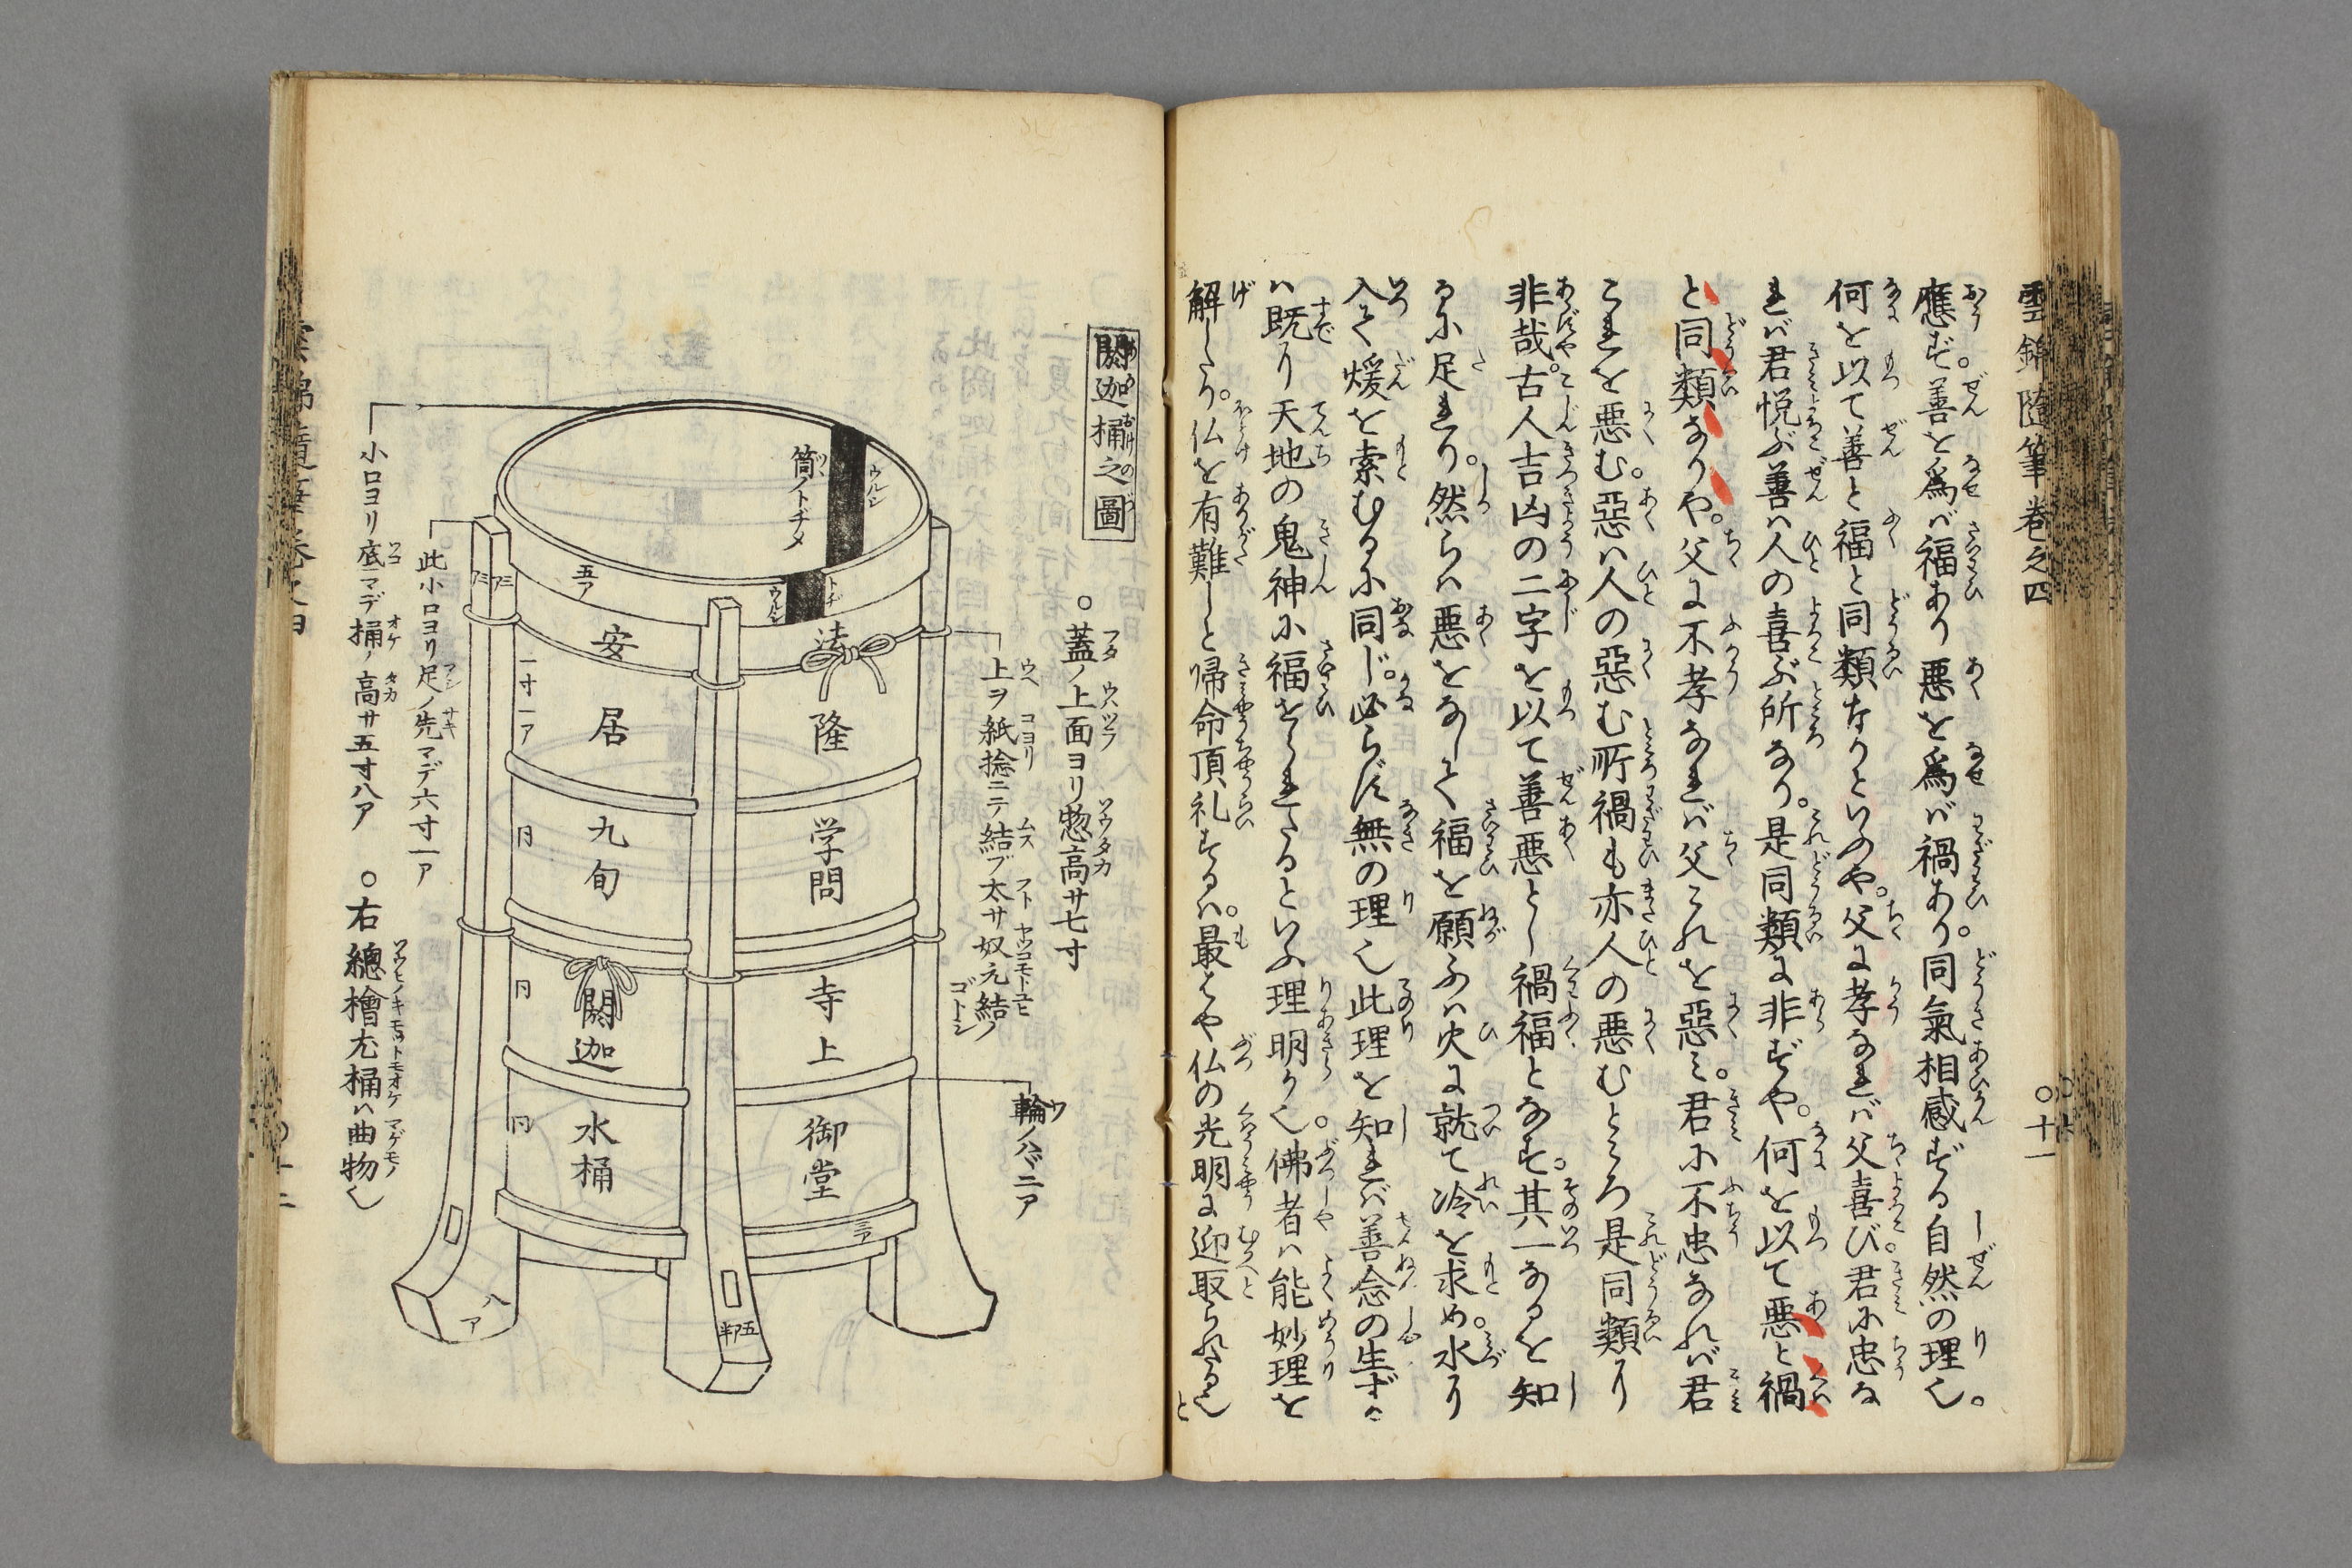 雲錦隨筆巻之四
〇十一
應ず。善を爲ば福あり悪を爲ば禍あり。同氣相感ずる自然の理也。
何を以て善と福と同類なりといふや。父に孝なれバ父喜び。君に忠な
れバ君悦ぶ善ハ人の喜ぶ所なり。是同類に非ずや。何を以て悪と禍
と同類なりや。父に不孝なれバ父これを惡ミ。君に不忠なれバ君
これを悪む。惡ハ人の惡む所禍も亦人の悪むところ是同類り
非哉。古人吉凶の二字を以て善悪とし禍福となす。其一なるを知
るに足れり。然らハ悪をなして福を願ふハ火に就て冷を求め。水り
入て煖を索むるに同じ。必らず無の理也此理を知れバ善念の生ずる
ハ既り天地の鬼神に福せられたるといふ理明り也。佛者ハ能妙理を
解したり。仏を有難しと帰命頂礼するハ。最はや仏の光明に迎取られたる也
と
閼迦桶之圖
〇蓋ノ上面ヨリ惣高サ七寸
上ヲ紙捻ニテ結ブ太サ奴元結ノ
ゴトシ
輪ノハヾニア
ウルシ
筒ノトヂメ
トヂ
ウルシ
五ア
法隆
学問
寺上
御堂
安居
九旬
閼迦
水桶
一寸一ア
同
同
同
三ア
三ア
三ア
八ア
五ア半
此小口ヨリ足ノ先マデ六寸一ア
小口ヨリ底マデ桶ノ高サ五寸八ア
〇右總檜尤桶ハ曲物也
雲錦隨筆巻之四
〇十二